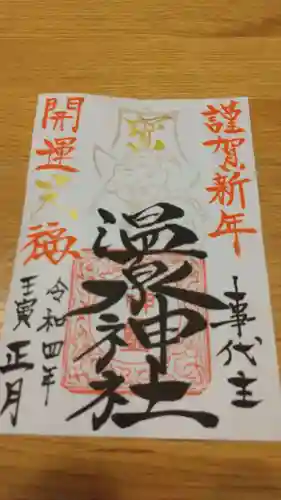 謹賀新年
事代主
温泉神社
開運
福
令和四年
壬寅 正月